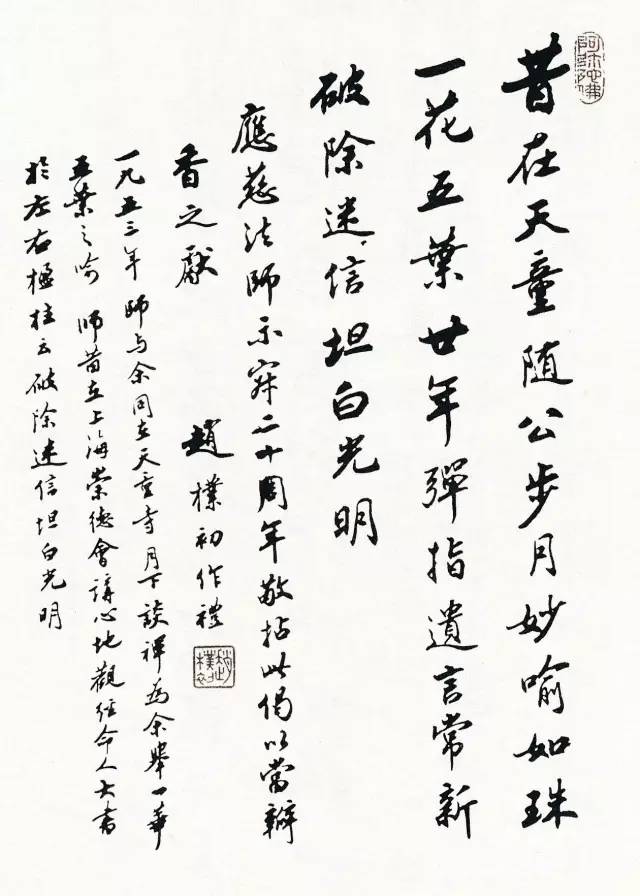 阿弥陀佛
昔在天童随公步月妙喻如珠
一花五葉廿年彈指遺言常新
破除迷信坦白光明
應慈法師示寂二十周年敬拈此偈以當瓣
香之獻
趙樸初作禮
趙樸初
一九五三年師与余同在天童寺月下談禪為余舉一華
五葉之喻師昔在上海崇德會講心地觀经命人大書
於左右楹柱云破除迷信坦白光明